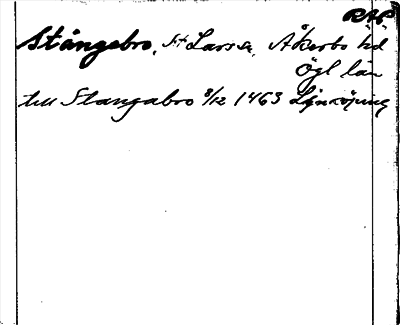 RAP
Stångebro, St Lars sn, Åkerbo hd
Ögl län
till Stangabro 8/12 1463 Linköping